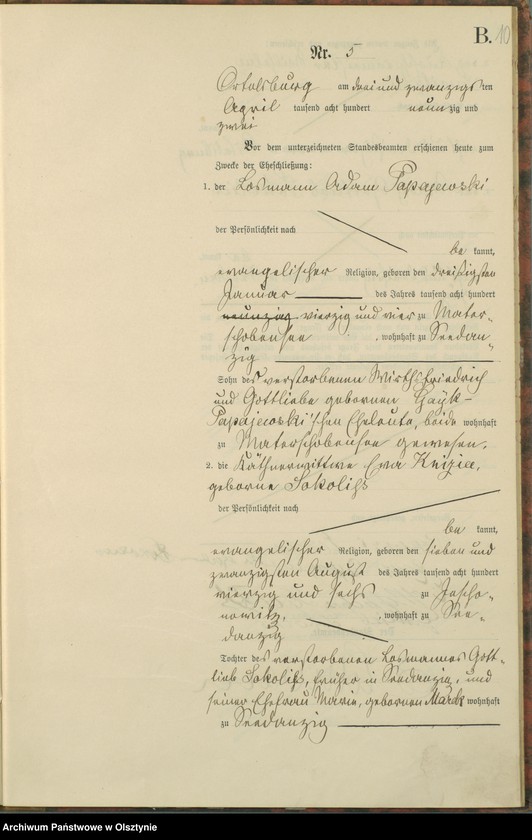 B. 10
Nr. 5
Ortelsburg am drei und zwanzigsten
April tausend acht hundert neunzig und
zwei
Vor dem unterzeichneten Standesbeamten erschienen heute zum
Zwecke der Eheschließung:
1. der Losmann Adam Papajewski
der Persönlichkeit nach
bekannt,
evangelischer Religion, geboren den dreißigsten
Januar des Jahres tausend acht hundert
neunzig vierzig und vier zu Mater-
schobensee, wohnhaft zu Seedan-
zig
Sohn des verstorbenen Wirths Friedrich
und Gottliebe gebornen
Papajewski'schen Eheleute, beide wohnhaft
zu Materschobensee gewesen.
2. die Käthnerwittwe Ewa
geborne Sokoliß
der Persönlichkeit nach
bekannt,
evangelischer Religion, geboren den sieben und
zwanzigsten August des Jahres tausend acht hundert
vierzig und sechs zu
, wohnhaft zu See-
danzig
Tochter des verstorbenen Losmannes Gott-
lieb Sokoliß, früher in Seedanzig, und
seiner Ehefrau Marie, gebornen Marek wohnhaft
zu Seedanzig
Archiwum Państwowe w Olsztynie